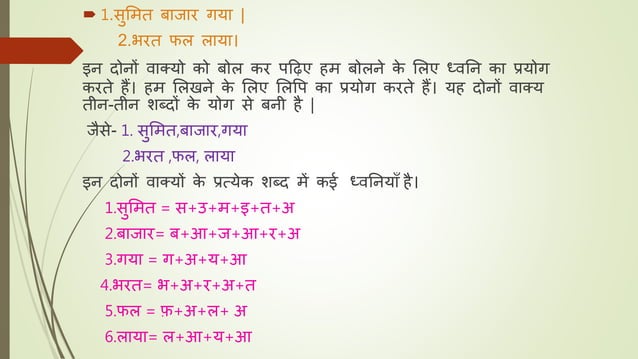 1.सुमित बाजार गया |
2.भरत फल लाया।
इन दोनों वाक्यो को बोल कर पढ़िए हम बोलने के लिए ध्वनि का प्रयोग
करते हैं। हम लिखने के लिए लिपि का प्रयोग करते हैं। यह दोनों वाक्य
तीन-तीन शब्दों के योग से बनी है |
जैसे- 1. सुमित,बाजार,गया
2.भरत ,फल, लाया
इन दोनों वाक्यों के प्रत्येक शब्द में कई ध्वनियाँ है।
1.सुमित = स+उ+म+इ+त+अ
2.बाजार= ब+आ+ज+आ+र+अ
3.गया = ग+अ+य+आ
4.भरत= भ+अ+र+अ+त
5.फल = फ़+अ+ल+ अ
6.लाया= ल+आ+य+आ